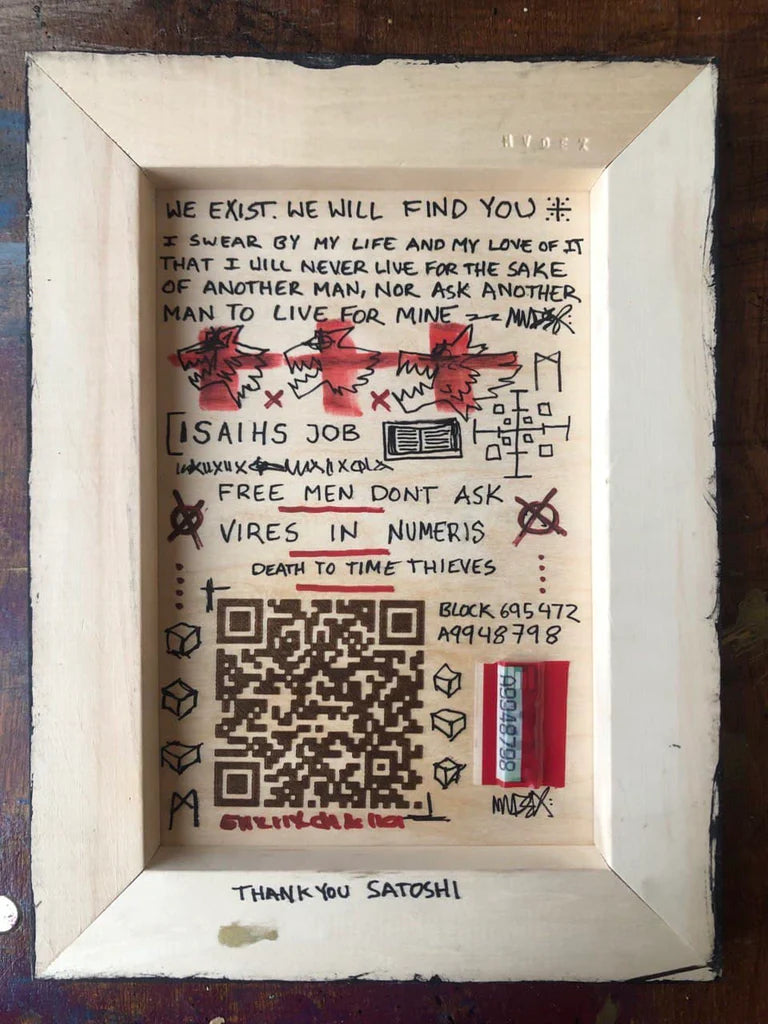 WE EXIST. WE WILL FIND YOU
I SWEAR BY MY LIFE AND MY LOVE OF IT
THAT I WILL NEVER LIVE FOR THE SAKE
OF ANOTHER MAN, NOR ASK ANOTHER
MAN TO LIVE FOR MINE
ISAIHS JOB
FREE MEN DONT ASK
VIRES IN NUMERIS
DEATH TO TIME THIEVES
BLOCK 695472
A9948798
A9948798
THANK YOU SATOSHI